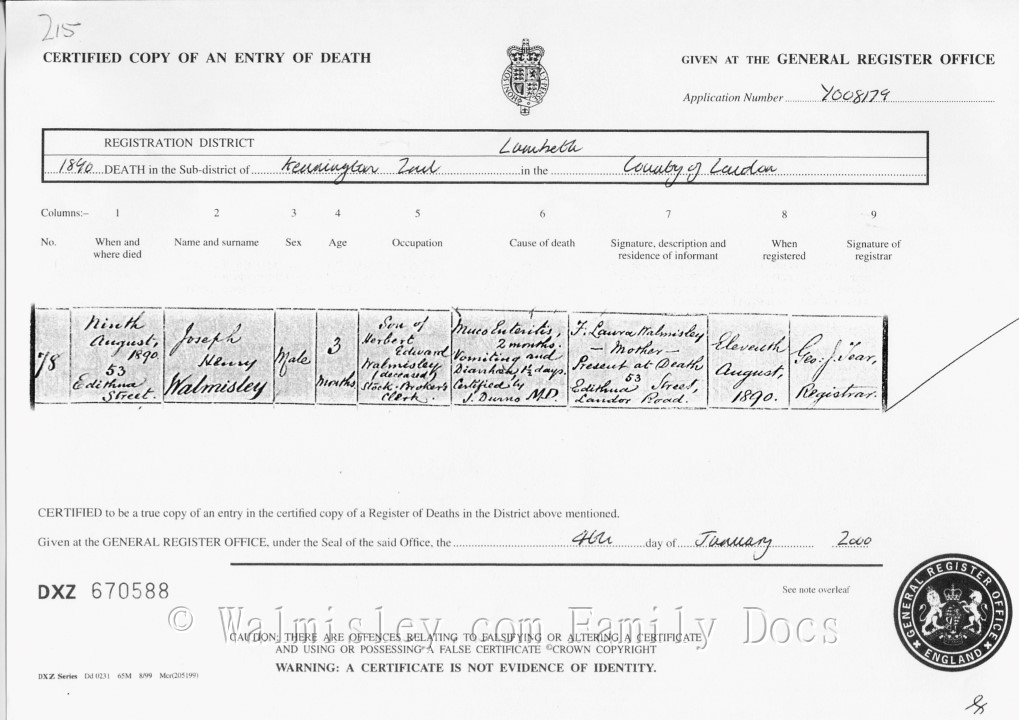 215
CERTIFIED COPY OF AN ENTRY OF DEATH
GIVEN AT THE GENERAL REGISTER OFFICE
Application Number Y008179
REGISTRATION DISTRICT Lambeth
1890 DEATH in the Sub-district of Kennington 2nd in the County of London
Columns:- 1 2 3 4 5 6 7 8 9
No. When and where died Name and surname Sex Age Occupation Cause of death Signature, description and residence of informant When registered Signature of registrar
78
Ninth
August,
1890
53
Edithna
Street.
Joseph
Henry
Walmisley
Male
3
Months
Son of
Herbert
Edward
Walmisley
(deceased)
Stock-Broker's
Clerk.
Muco Enteritis,
2 months.
Vomiting and
Diarrhœa, 1½ days.
Certified by
J. Durno M.D.
F. Laura Walmisley
- Mother -
Present at Death
53
Edithna Street,
Landor Road.
Eleventh
August,
1890.
Geo: J. Tear,
Registrar.
CERTIFIED to be a true copy of an entry in the certified copy of a Register of Deaths in the District above mentioned.
Given at the GENERAL REGISTER OFFICE, under the Seal of the said Office, the 4th day of January 2000
DXZ 670588
See note overleaf
© Walmisley.com Family Docs
CAUTION: THERE ARE OFFENCES RELATING TO FALSIFYING OR ALTERING A CERTIFICATE
AND USING OR POSSESSING A FALSE CERTIFICATE ©CROWN COPYRIGHT
WARNING: A CERTIFICATE IS NOT EVIDENCE OF IDENTITY.
DXZ Series Dd 0231 65M 8/99 Mcr(205199)
GENERAL REGISTER OFFICE
ENGLAND